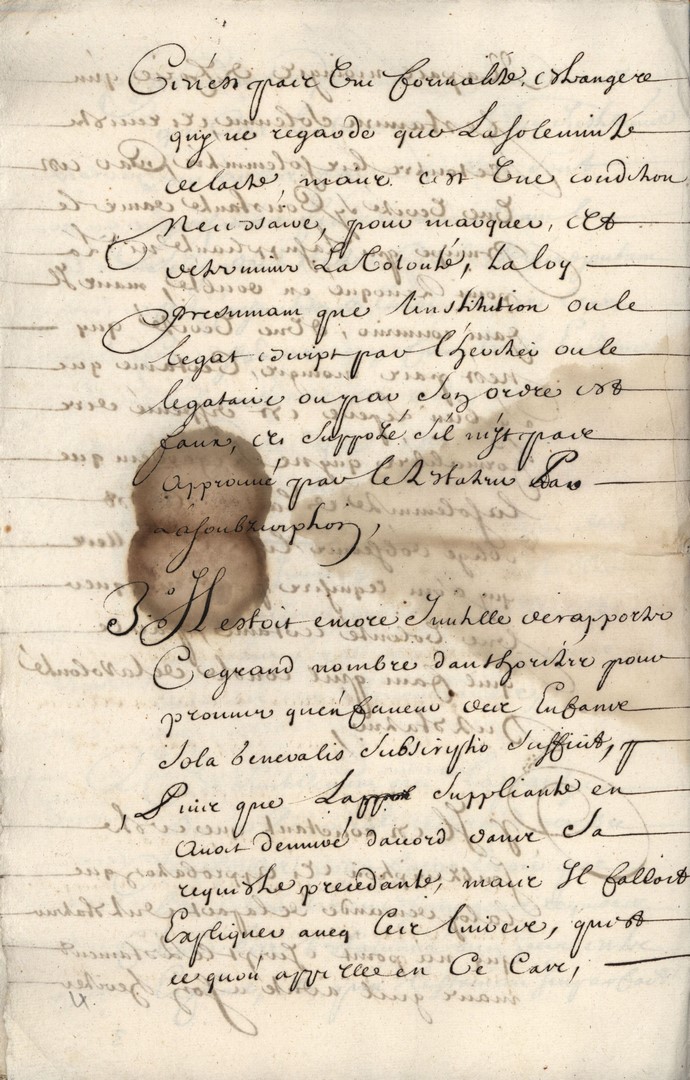 Ce n'est pas Une formalité, estrangere
quy ne regarde que La solemnité
de lacte, mais c'est Une condition
Necessaire, pour marquer, et
determiner La Volonté, La loy
presumant que linstitution ou le
legat escript par l'heritier ou le
legataire ou par son ordre est
faux, et supposé s'il n'est pas
approuvé par le testateur Par
La soubscription,
3.o Il estoit encore Inutille de raporter
Ce grand nombre d'authorités pour
prouver qu'en faveur des Enfans
sola generalis subscriptio sufficit,
Puis que La suppliante en
avoit demeuré d'acord dans sa
requeste precedante, mais Il falloit
Expliquer aveq les livres, qu'est
ce qu'on appelle en Ce Cas,